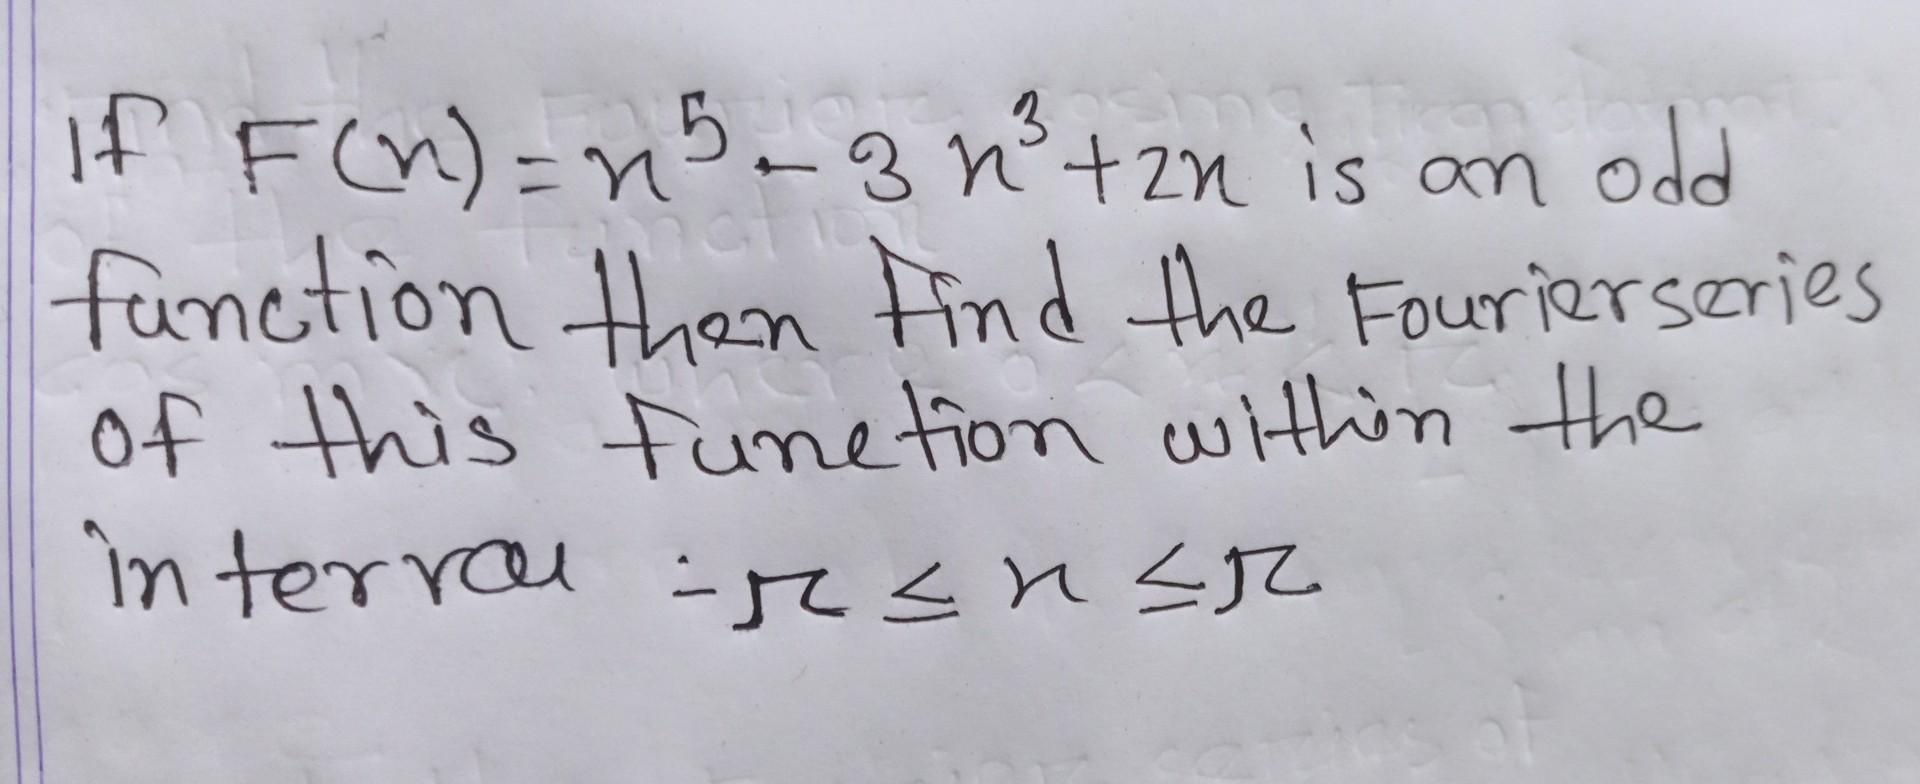 If F(x) = x⁵ - 3x³ + 2x is an odd
function then find the Fourier series
of this function within the
interval -π ≤ x ≤ π